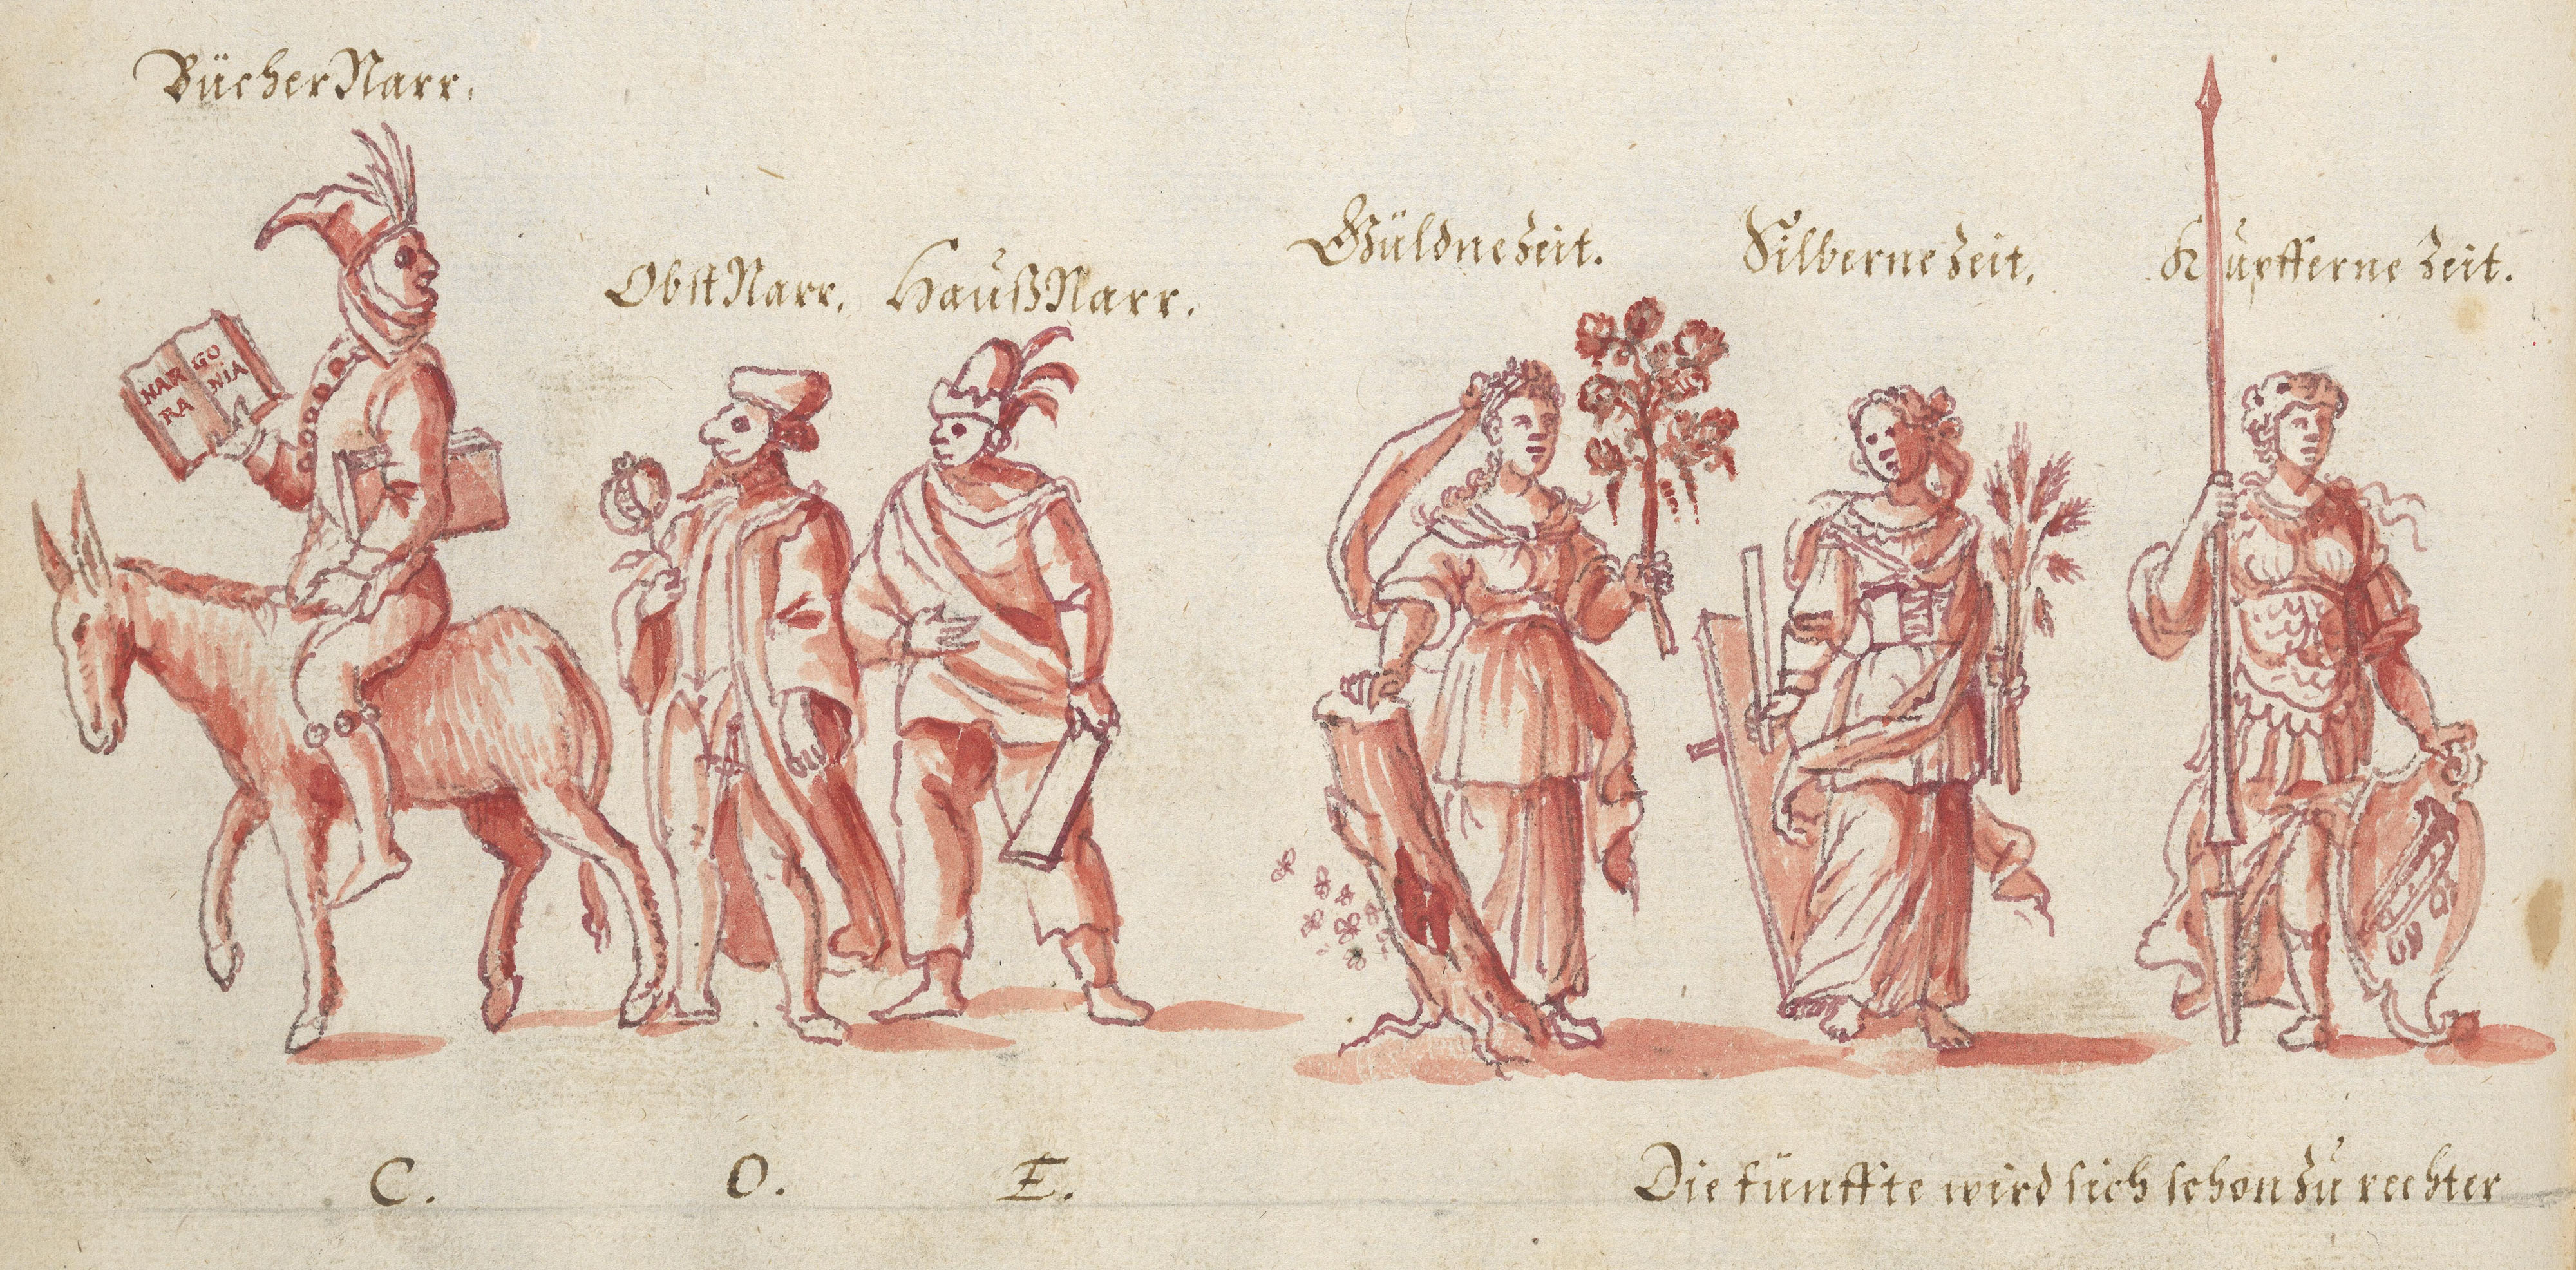 BücherNarr.
NAR GO
RA NIA
ObstNarr. HaußNarr.
Güldne Zeit. Silberne Zeit. Kupfferne Zeit.
C. O. E.
Die fünffte wird sich schon zu rechter